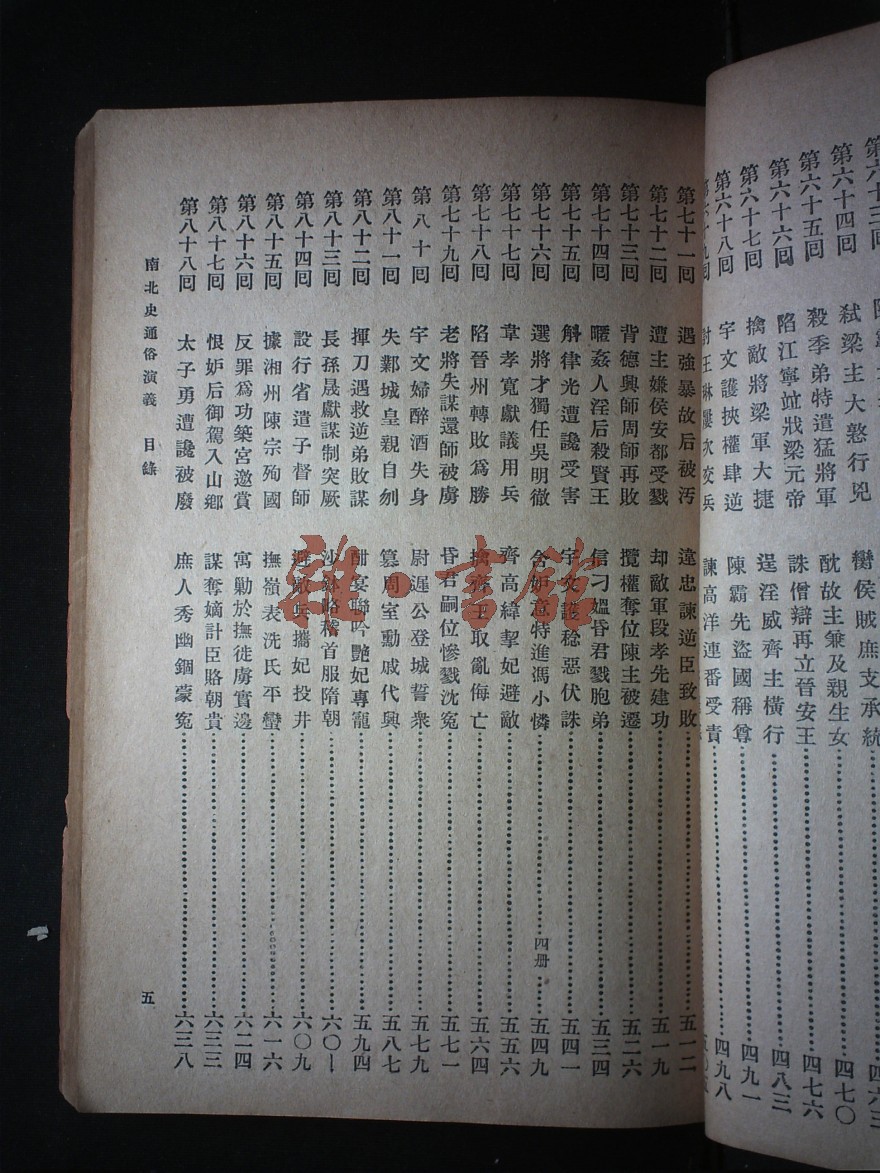 第六十四回 弒梁主大憝行兇 酖故主兼及親生女 四七〇
第六十五回 殺季弟特遣猛將軍 誅僧辯再立晉安王 四七六
第六十六回 陷江寧竝戕梁元帝 逞淫威齊主橫行 四八三
第六十七回 擒敵將梁軍大捷 陳霸先盜國稱尊 四九一
第六十八回 宇文護挾權肆逆 諫高洋連番受責 四九八
第七十一回 遇強暴故后被污 違忠諫逆臣致敗 五一二
第七十二回 遭主嫌侯安都受戮 却敵軍段孝先建功 五一九
第七十三回 背德興師周師再敗 攬權奪位陳主被遷 五二六
第七十四回 暱姦人淫后殺賢王 信刁媼昏君戮胞弟 五三四
第七十五回 斛律光遭讒受害 宇文護稔惡伏誅 五四一
第七十六回 選將才獨任吳明徹 含妒意特進馮小憐 四册 五四九
第七十七回 韋孝寬獻議用兵 齊高緯挈妃避敵 五五六
第七十八回 陷晉州轉敗爲勝 擒齊王取亂侮亡 五六四
第七十九回 老將失謀還師被虜 昏君嗣位慘戮沈冤 五七一
第八十回 宇文婦醉酒失身 尉遲公登城誓衆 五七九
第八十一回 失鄴城皇親自刎 篡周室勳戚代興 五八七
第八十二回 揮刀遇救逆弟敗謀 酣宴聯吟艷妃專寵 五九四
第八十三回 長孫晟獻謀制突厥 沙鉢略稽首服隋朝 六〇一
第八十四回 設行省遣子督師 避敵兵攜妃投井 六〇九
第八十五回 據湘州陳宗殉國 撫嶺表洗氏平蠻 六一六
第八十六回 反罪爲功築宮邀賞 寓勦於撫徙虜實邊 六二四
第八十七回 恨妒后御駕入山鄉 謀奪嫡計臣賂朝貴 六三三
第八十八回 太子勇遭讒被廢 庶人秀幽錮蒙冤 六三八
南北史通俗演義 目錄 五
雜·書館